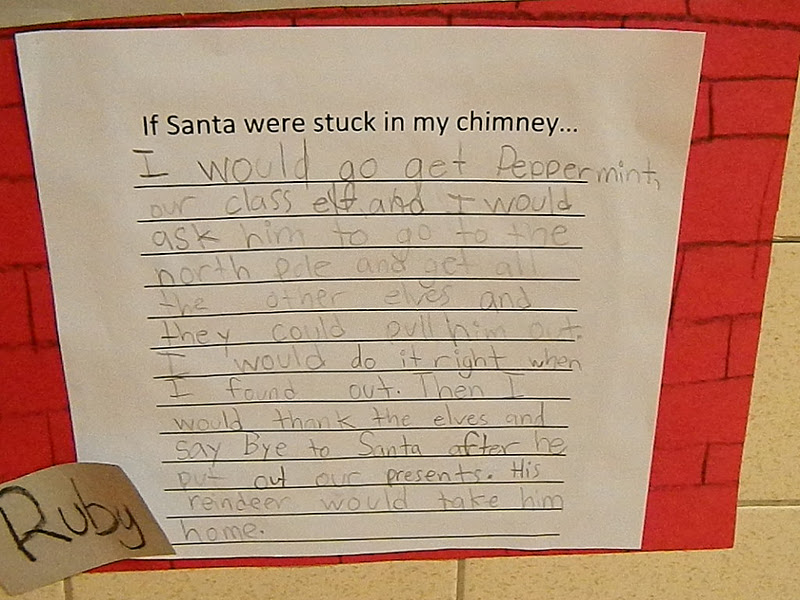 If Santa were stuck in my chimney...
I would go get Peppermint,
our class elf and I would
ask him to go to the
north pole and get all
the other elves and
they could pull him out.
I would do it right when
I found out. Then I
would thank the elves and
say Bye to Santa after he
put out our presents. His
reindeer would take him
home.
Ruby